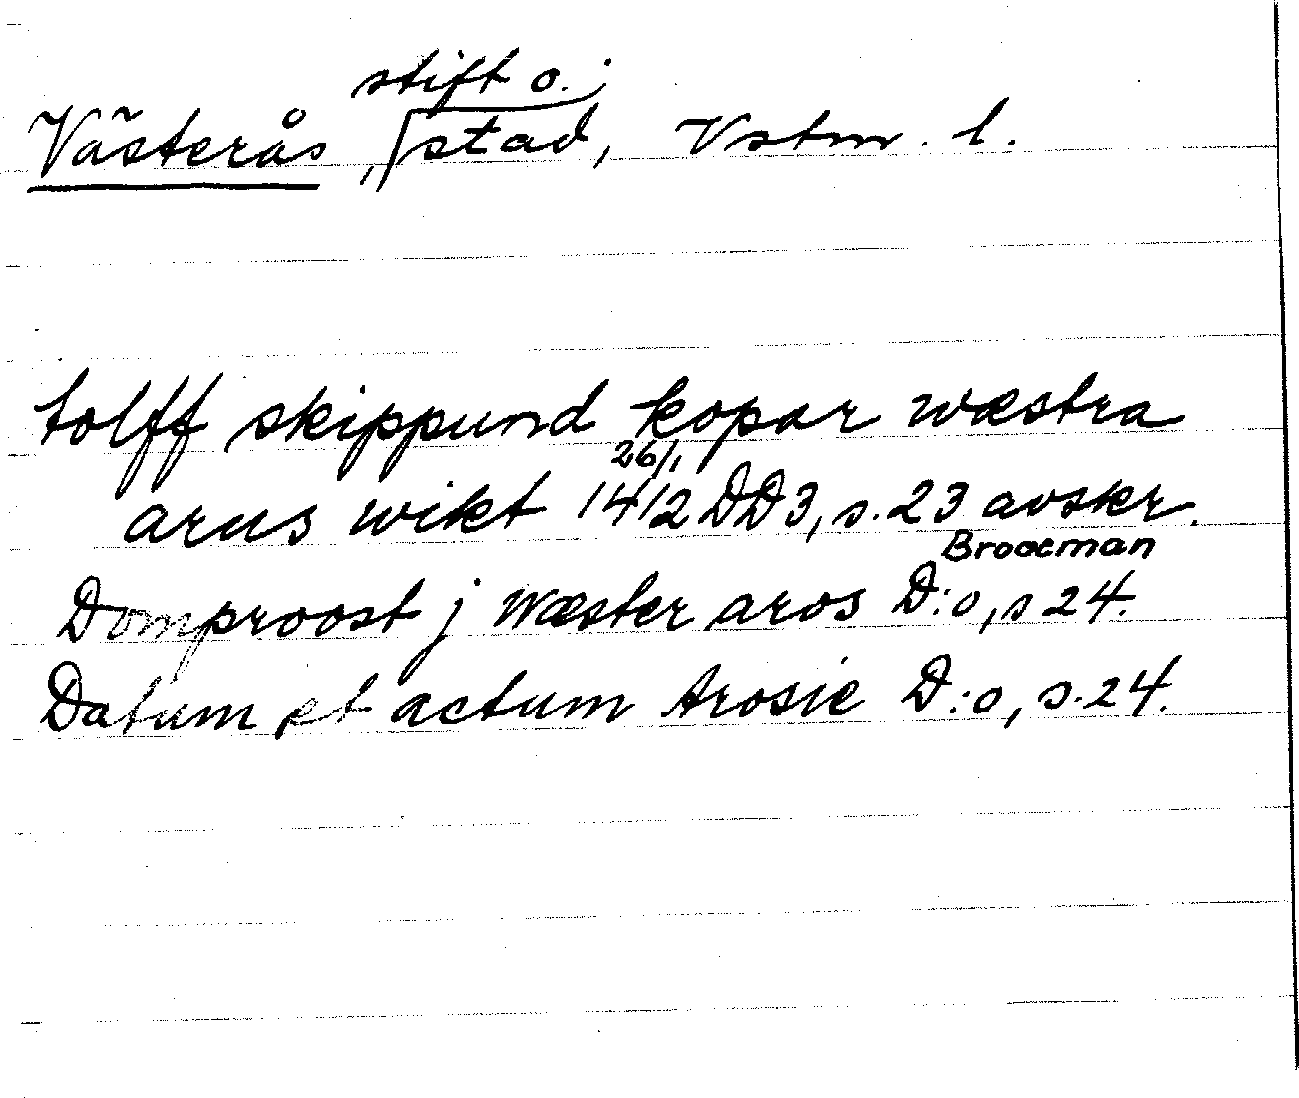 Västerås, stift o. stad, Vstm. l.
tolff skippund kopar wæstra
arus wikt 26/1 1412 DD3, s. 23 avskr.
Brocman
Domproost j wæster aros D:o, s 24.
Datum et actum Arosie D:o, s. 24.